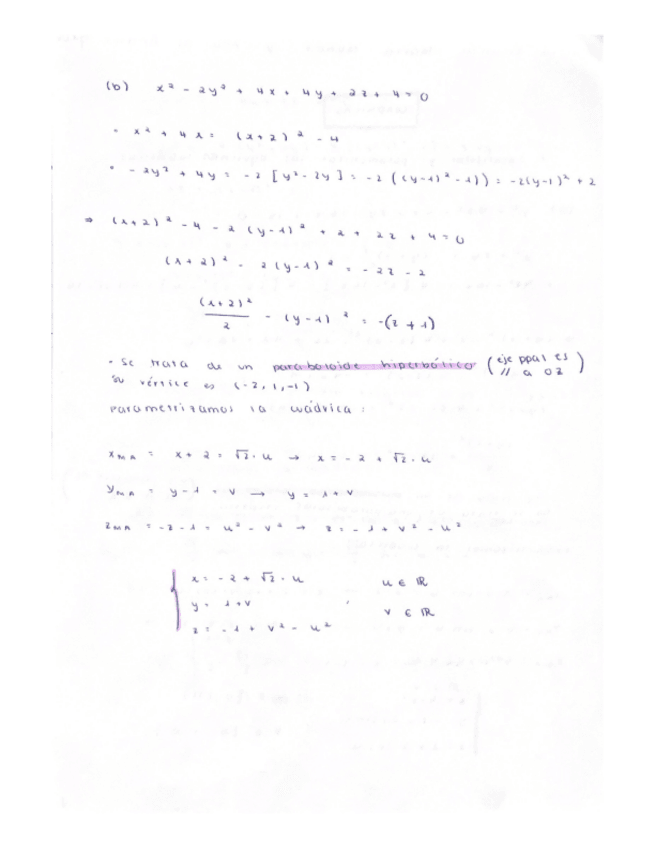 (b) x² - 2y² + 4x + 4y + 2z + 4 = 0
· x² + 4x = (x+2)² - 4
· - 2y² + 4y = -2 [y² - 2y] = -2 ((y-1)² - 1)) = -2(y-1)² + 2
⇒ (x+2)² - 4 - 2 (y-1)² + 2 + 2z + 4 = 0
(x+2)² - 2(y-1)² = -2z - 2
(x+2)²/2 - (y-1)² = -(z+1)
· Se trata de un paraboloide hiperbólico (eje ppal es // a OZ)
Su vértice es (-2,1,-1)
Parametrizamos la cuádrica:
x_MA = x+2 = √2·u → x = -2 + √2·u
y_MA = y-1 = v → y = 1+v
z_MA = -z-1 = u² - v² → z = -1 + v² - u²
{ x = -2 + √2·u u ∈ ℝ
y = 1+v , v ∈ ℝ
z = -1 + v² - u²